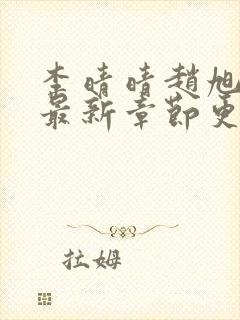 李晴晴趙旭
最新章節更
拉姆